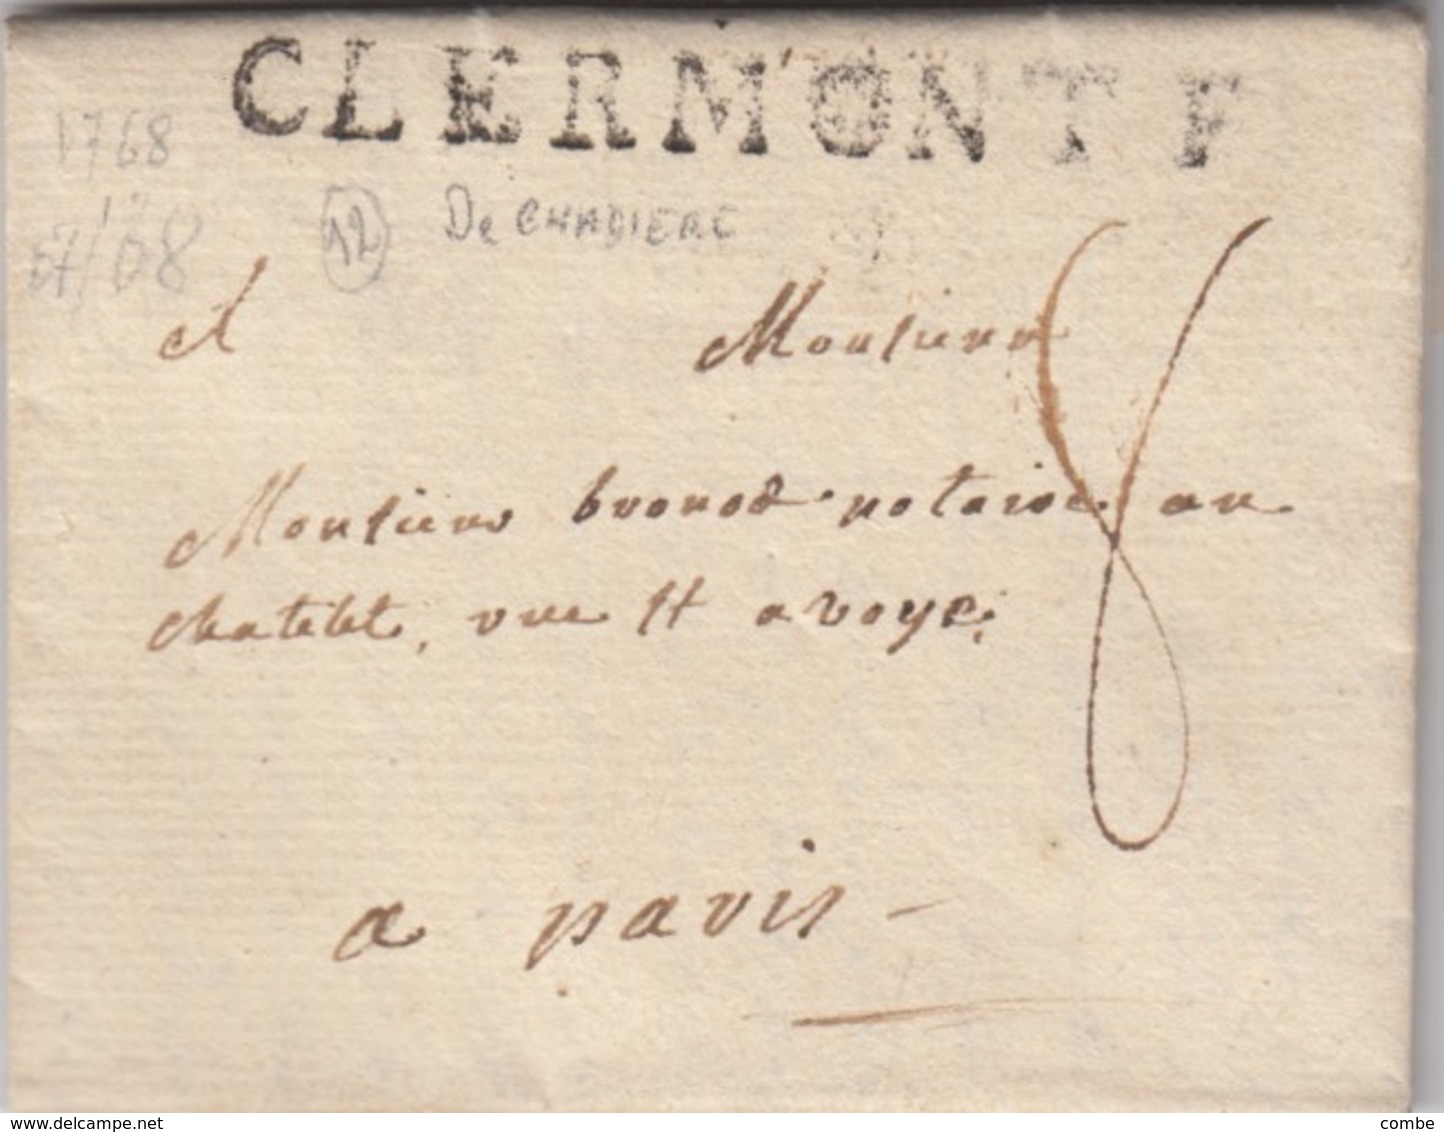 CLERMONT F
1768
12 De CHADIERE
A Monsieur
Monsieur bronod notaire au
chatelet, rue St avoye,
a paris -
8
www.delcampe.net
combe